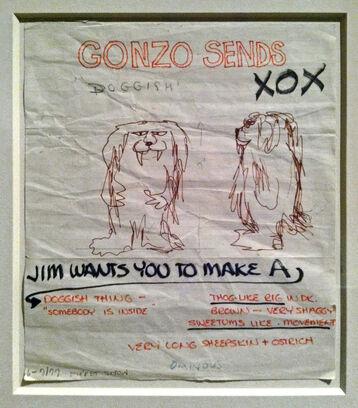 GONZO SENDS
XOX
"DOGGISH"
JIM WANTS YOU TO MAKE A
DOGGISH THING -
"SOMEBODY IS INSIDE
THOG-LIKE BIG IN DK.
BROWN - VERY SHAGGY"
SWEETUMS LIKE MOVEMENT
VERY LONG SHEEPSKIN + OSTRICH
OMINOUS
6-7/77 MUPPET SHOW